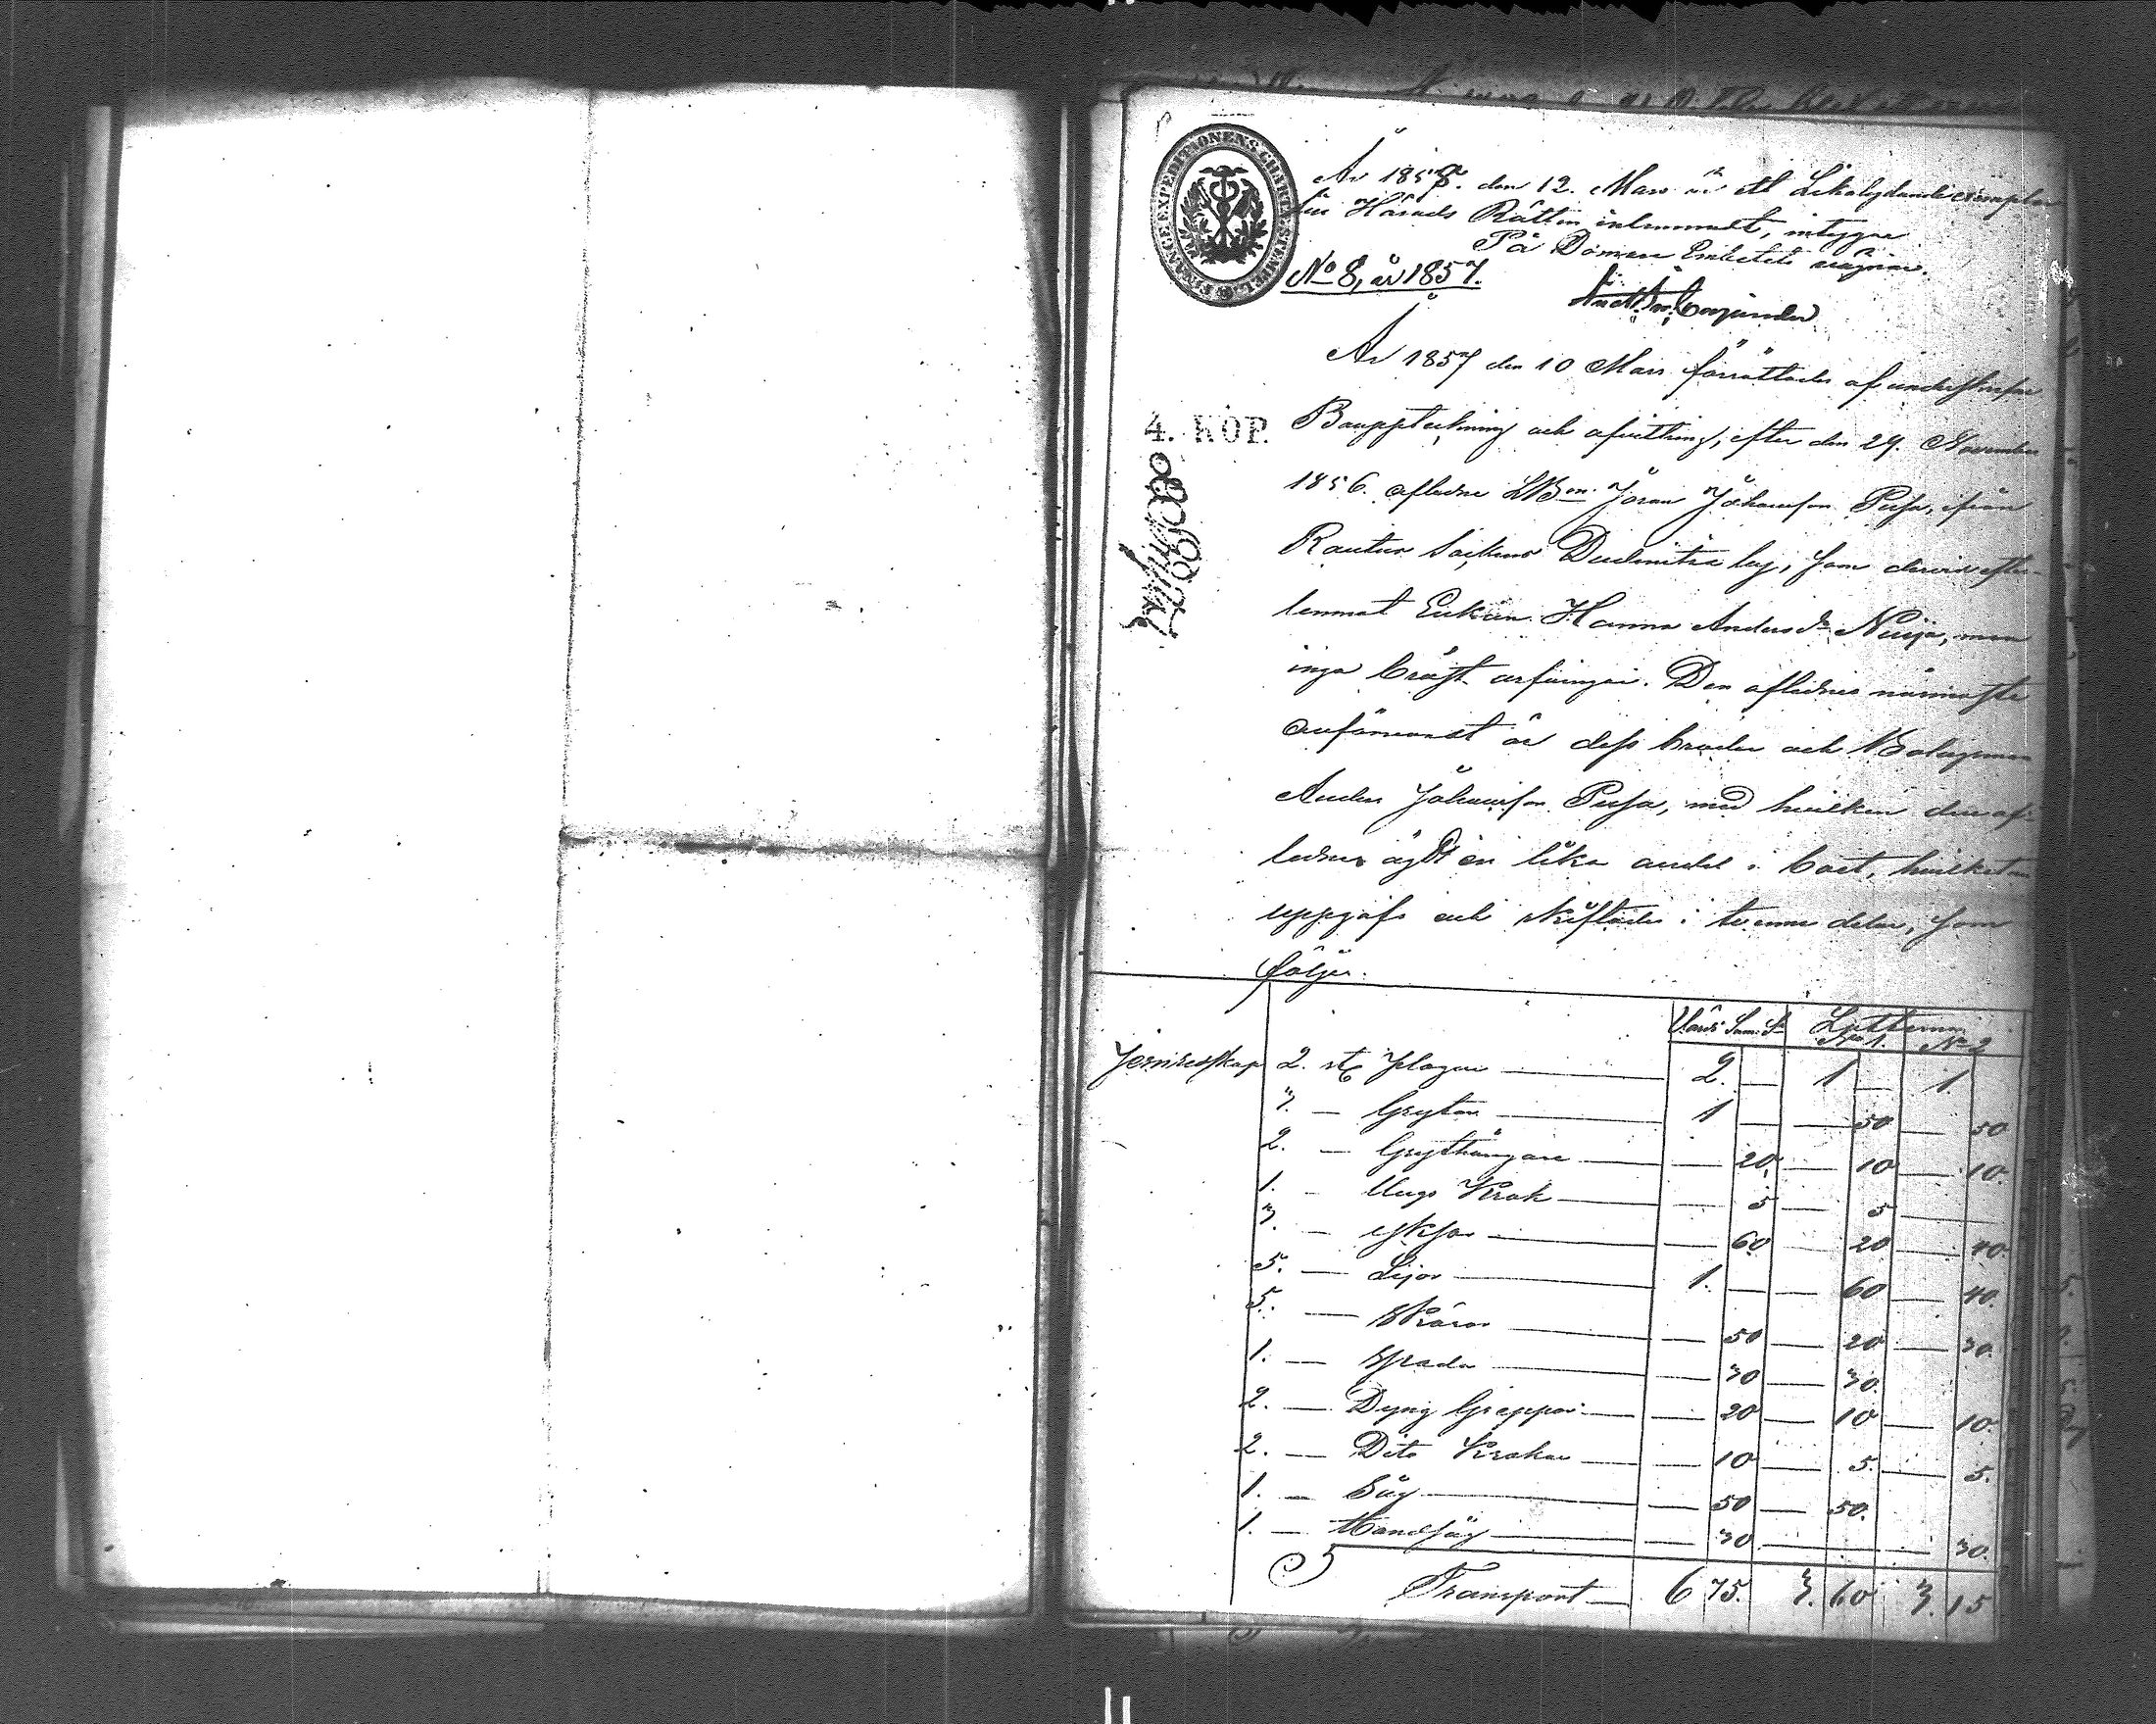 FINANCE EXPEDITIONENS CHARTÆ STEMPEL
År 1857. den 12. Mars är ett Likalydande exemplar
till Härads Rätten inlemnadt, intygar
På Domare Embetets vägnar.
No 8, år 1857.
År 1857 den 10 Mars förrättades af undertecknade
4. KOP.
Bouppteckning och afvittring, efter den 29. November
1856. aflidne LBon. Jöran Johansson Pusa, ifrån
Rautus Sockens Dudmitra by, som dervid efter-
lemnat Enkan Hanna Andersdr Nuija, men
inga bröst arfvingar. Den aflidnes närmaste
anförvandt är dess broder och Bolagsman
Anders Johansson Pusa, med hvilken den af-
lidne ägdt en lika andel i boet, hvilket nu
uppgafs och skiftades i tvenne delar, som
följer.
Värde Sum. Lotterna
No 1. No 2
Jernredskap 2. st Plogar 2. — 1 — 1.
3. — Grytor 1 — — 50 — 50
2. — Grythängare — 20 — 10 — 10.
1. - Ugns Krok — 5 — 5 —
3. — yxor — 60 — 20 — 40.
5. — Lijor 1. — — 60 — 40.
5. — Skäror — 50 — 20 — 30.
1. — spada — 30 — 30.
2. — Dyng Greppar — 20 — 10 — 10.
2. — Dito Krokar — 10 — 5. — 5.
1. — Såg — 50 — 50.
1. — Handsåg — 30 — — 30.
Transport — 6 75. 3. 60 3. 15